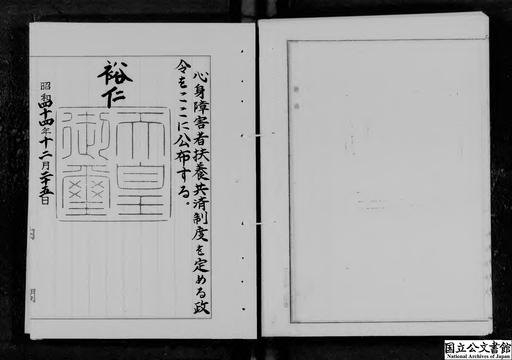 心身障害者扶養共済制度を定める政
令をここに公布する。
裕仁
天皇
御璽
昭和四十四年十二月二十五日
国立公文書館
National Archives of Japan